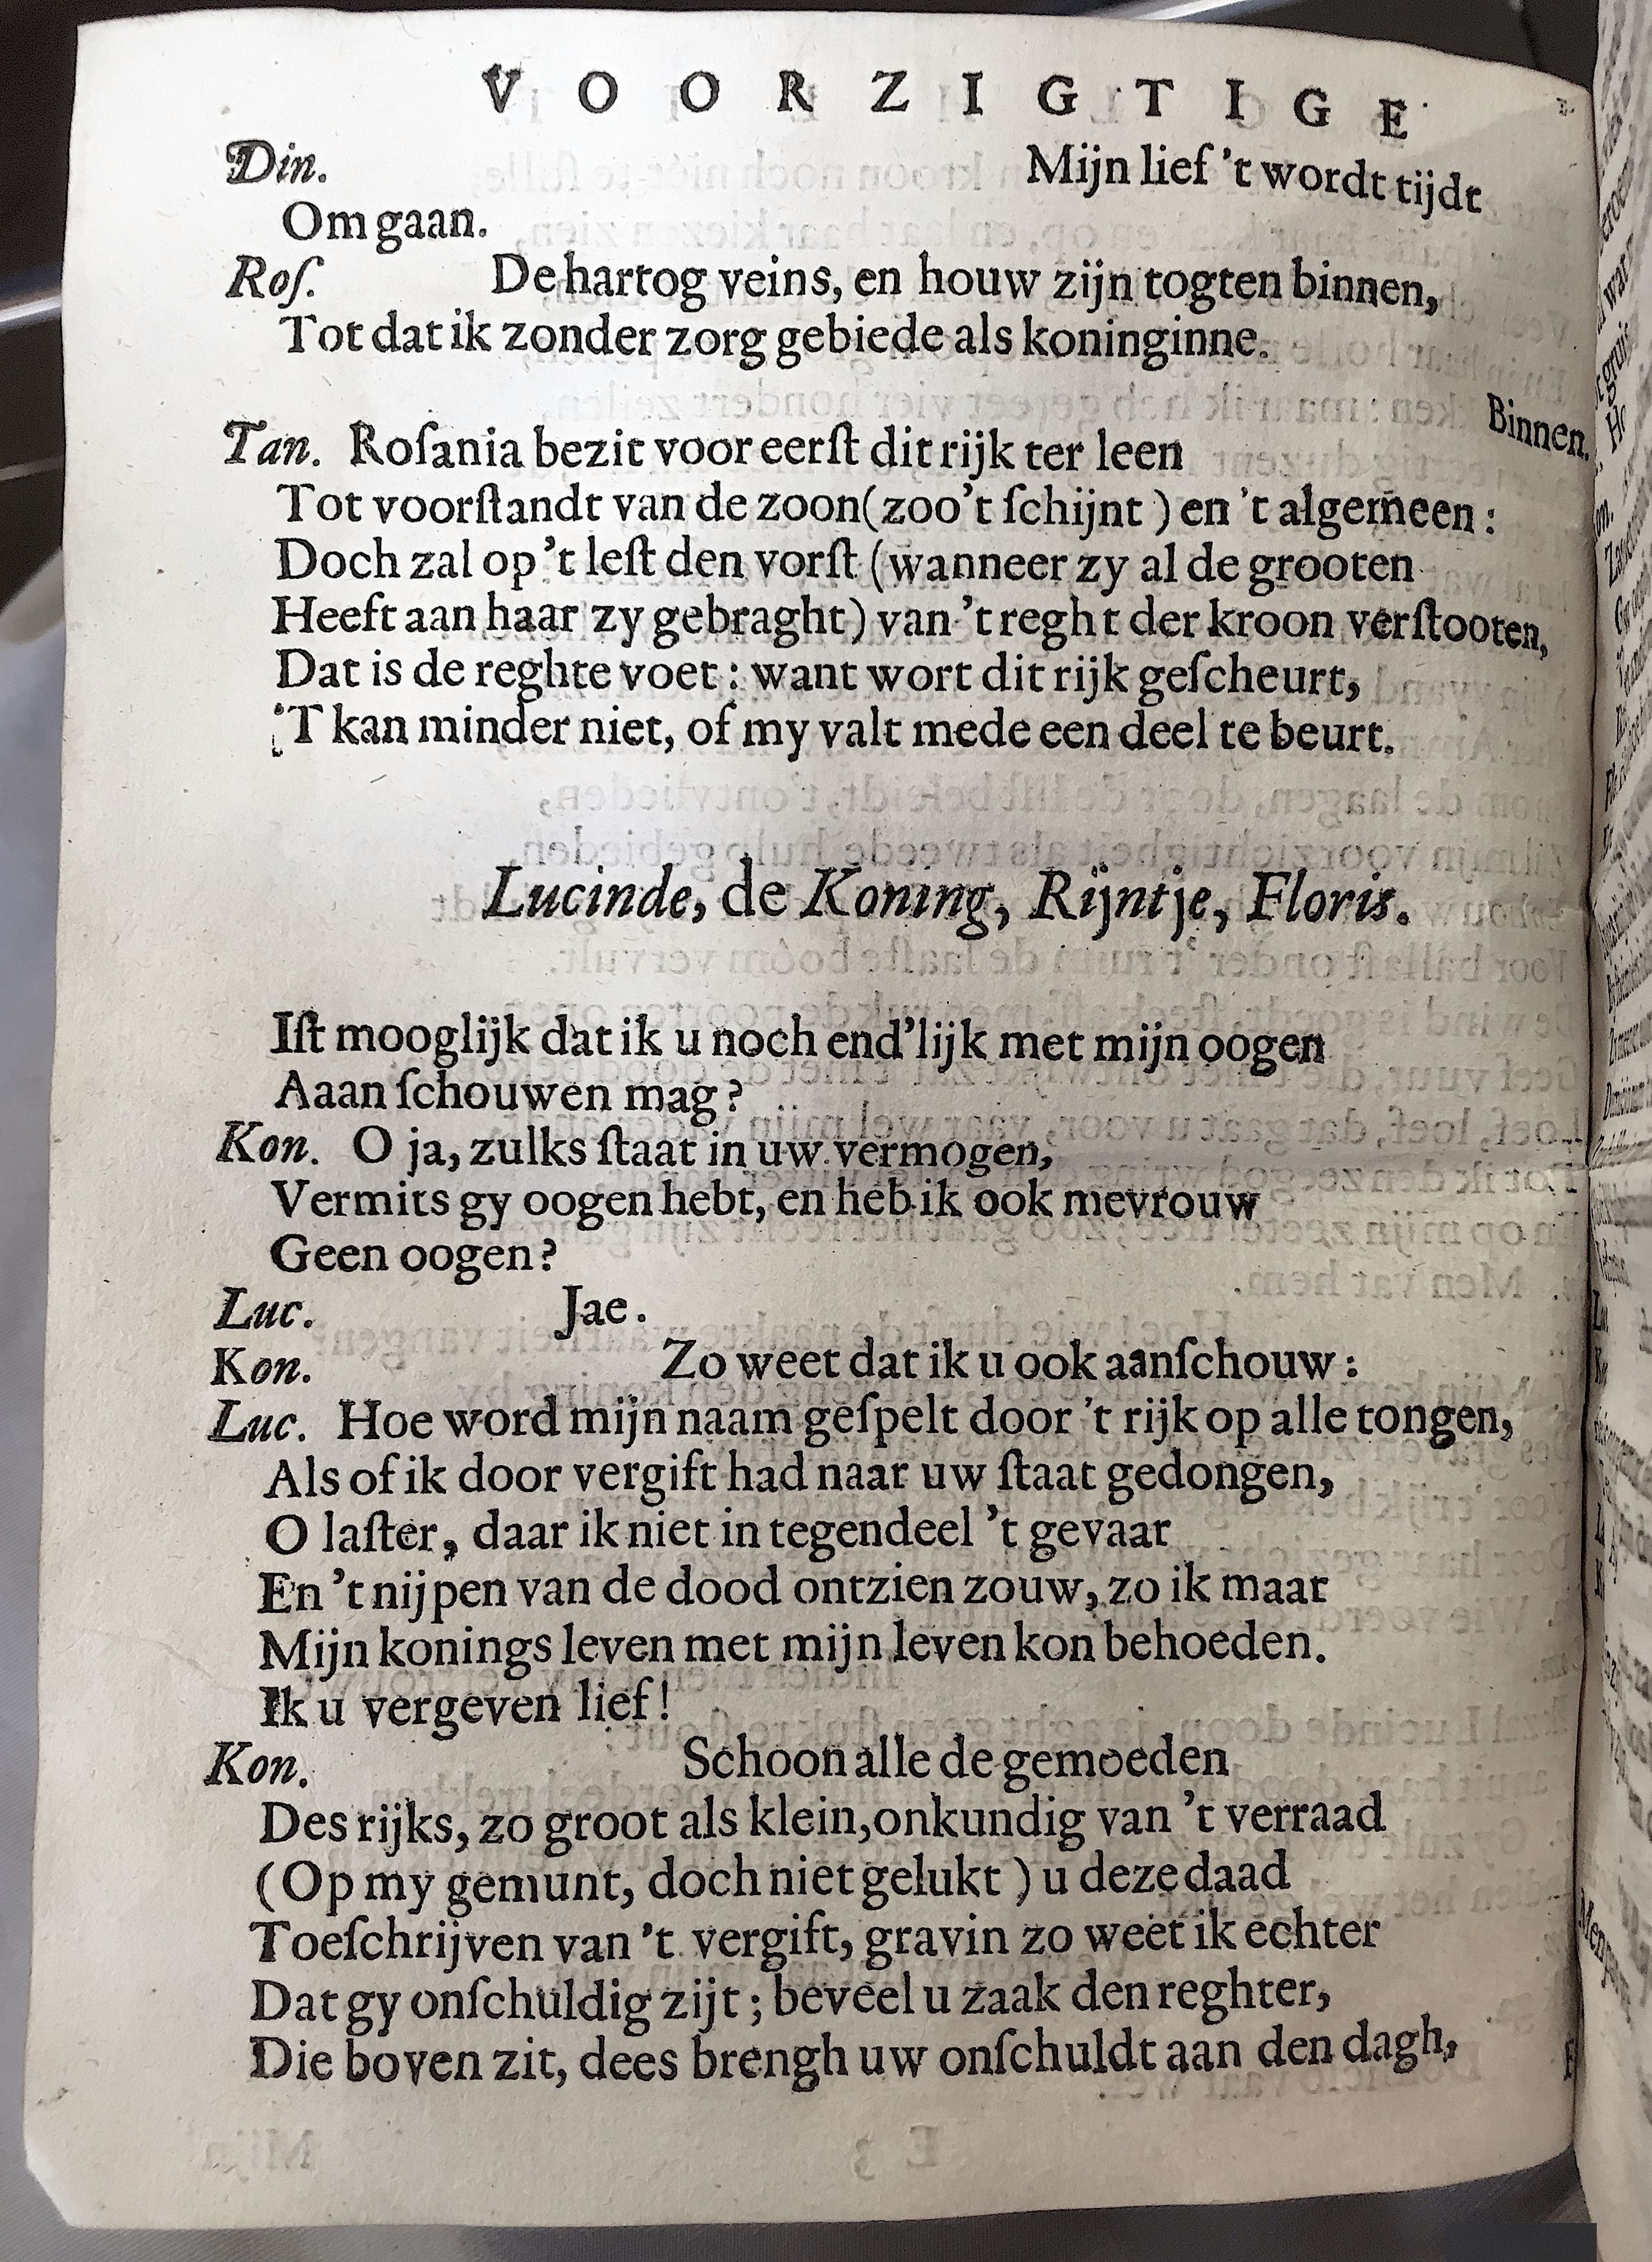 VOORZIGTIGE
Din. Mijn lief 't wordt tijdt
Om gaan.
Roſ. De hartog veins, en houw zijn togten binnen,
Tot dat ik zonder zorg gebiede als koninginne.
Binnen.
Tan. Roſania bezit voor eerſt dit rijk ter leen
Tot voorſtandt van de zoon (zoo't ſchijnt) en 't algemeen:
Doch zal op 't leſt den vorſt (wanneer zy al de grooten
Heeft aan haar zy gebraght) van 't reght der kroon verſtooten,
Dat is de reghte voet: want wort dit rijk geſcheurt,
'T kan minder niet, of my valt mede een deel te beurt.
Lucinde, de Koning, Rijntje, Floris.
Iſt mooglijk dat ik u noch end'lijk met mijn oogen
Aaan ſchouwen mag?
Kon. O ja, zulks ſtaat in uw vermogen,
Vermits gy oogen hebt, en heb ik ook mevrouw
Geen oogen?
Luc. Jae.
Kon. Zo weet dat ik u ook aanſchouw:
Luc. Hoe word mijn naam geſpelt door 't rijk op alle tongen,
Als of ik door vergift had naar uw ſtaat gedongen,
O laſter, daar ik niet in tegendeel 't gevaar
En 't nijpen van de dood ontzien zouw, zo ik maar
Mijn konings leven met mijn leven kon behoeden.
Ik u vergeven lief!
Kon. Schoon alle de gemoeden
Des rijks, zo groot als klein, onkundig van 't verraad
(Op my gemunt, doch niet gelukt) u deze daad
Toeſchrijven van 't vergift, gravin zo weet ik echter
Dat gy onſchuldig zijt; beveel u zaak den reghter,
Die boven zit, dees brengh uw onſchuldt aan den dagh,